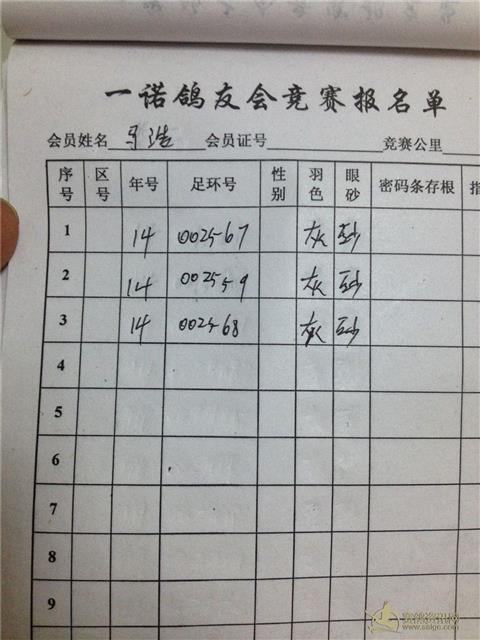 一诺鸽友会竞赛报名单
会员姓名 马浩 会员证号 竞赛公里
序号 区号 年号 足环号 性别 羽色 眼砂 密码条存根
1 14 002567 灰 砂
2 14 002559 灰 砂
3 14 002568 灰 砂
4
5
6
7
8
9
www.saige.com